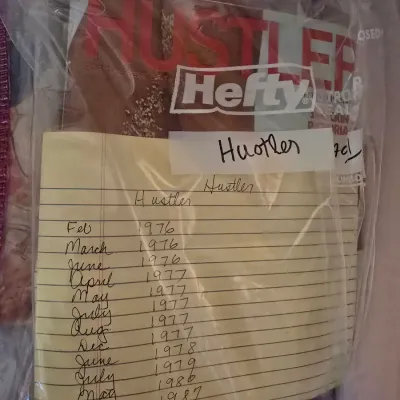 HUSTLER
Hefty
Hustler
Hustler Hustler
Feb 1976
March 1976
June 1976
April 1977
May 1977
July 1977
Aug 1977
Dec 1978
June 1979
July 1986
1987